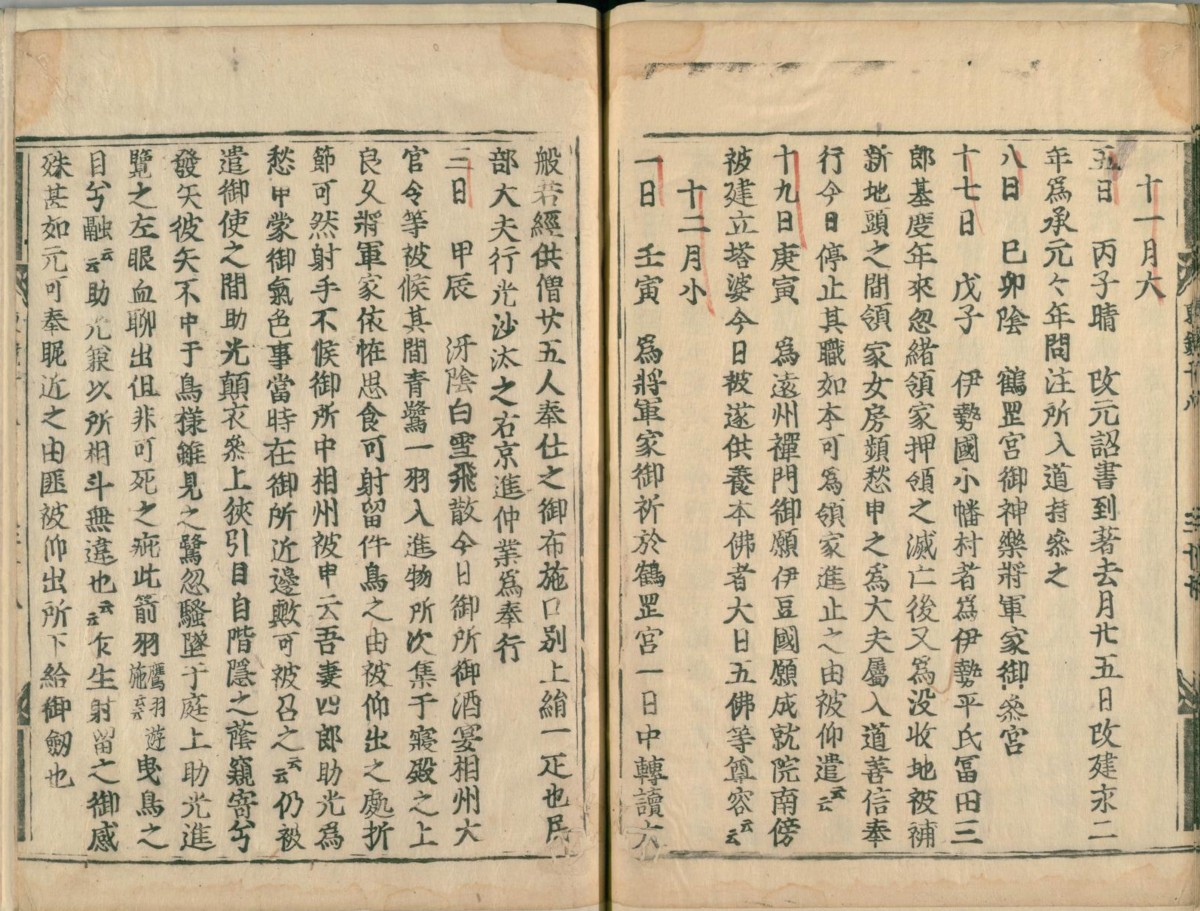 十一月大
五日 丙子晴 改元詔書到著去月廿五日改建永二
年爲承元々年問注所入道持參之
八日 己卯陰 鶴罡宮御神樂將軍家御參宮
十七日 戊子 伊勢國小幡村者爲伊勢平氏冨田三
郎基度年來忽緒領家押領之滅亡後又爲没收地被補
新地頭之間領家女房頻愁申之爲大夫屬入道善信奉
行今日停止其職如本可爲領家進止之由被仰遣云云
十九日庚寅 爲遠州禪門御願伊豆國願成就院南傍
被建立塔婆今日被遂供養本佛者大日五佛等尊容云云
十二月小
一日 壬寅 爲將軍家御祈於鶴罡宮一日中轉讀大
般若經供僧廿五人奉仕之御布施口別上絹一疋也民
部大夫行光沙汰之右京進仲業爲奉行
三日 甲辰 冴陰白雪飛散今日御所御酒宴相州大
官令等被候其間青鷺一羽入進物所次集于寢殿之上
良久將軍家依恠思食可射留件鳥之由被仰出之處折
節可然射手不候御所中相州被申云吾妻四郎助光爲
愁申蒙御氣色事當時在御所近邊歟可被召之云云仍被
遣御使之間助光顛衣參上挾引目自階隱之蔭窺寄兮
發矢彼矢不中于鳥樣雖見之鷺忽騷墜于庭上助光進
覽之左眼血聊出但非可死之疵此箭羽鷹羽施云云遊曳鳥之
目兮融云云助光兼以所相斗無違也云云乍生射留之御感
殊甚如元可奉昵近之由匪被仰出所下給御劔也